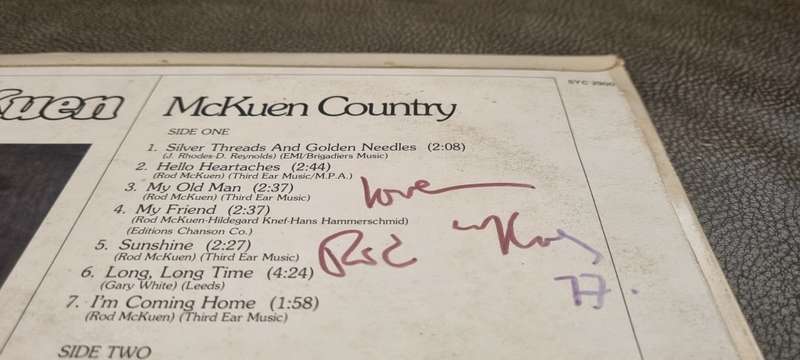 Kuen
SYC 2900
McKuen Country
SIDE ONE
1. Silver Threads And Golden Needles (2:08)
(J. Rhodes-D. Reynolds) (EMI/Brigadiers Music)
2. Hello Heartaches (2:44)
(Rod McKuen) (Third Ear Music/M.P.A.)
3. My Old Man (2:37)
(Rod McKuen) (Third Ear Music)
4. My Friend (2:37)
(Rod McKuen-Hildegard Knef-Hans Hammerschmid)
(Editions Chanson Co.)
5. Sunshine (2:27)
(Rod McKuen) (Third Ear Music)
6. Long, Long Time (4:24)
(Gary White) (Leeds)
7. I'm Coming Home (1:58)
(Rod McKuen) (Third Ear Music)
SIDE TWO
love
Rod
77.